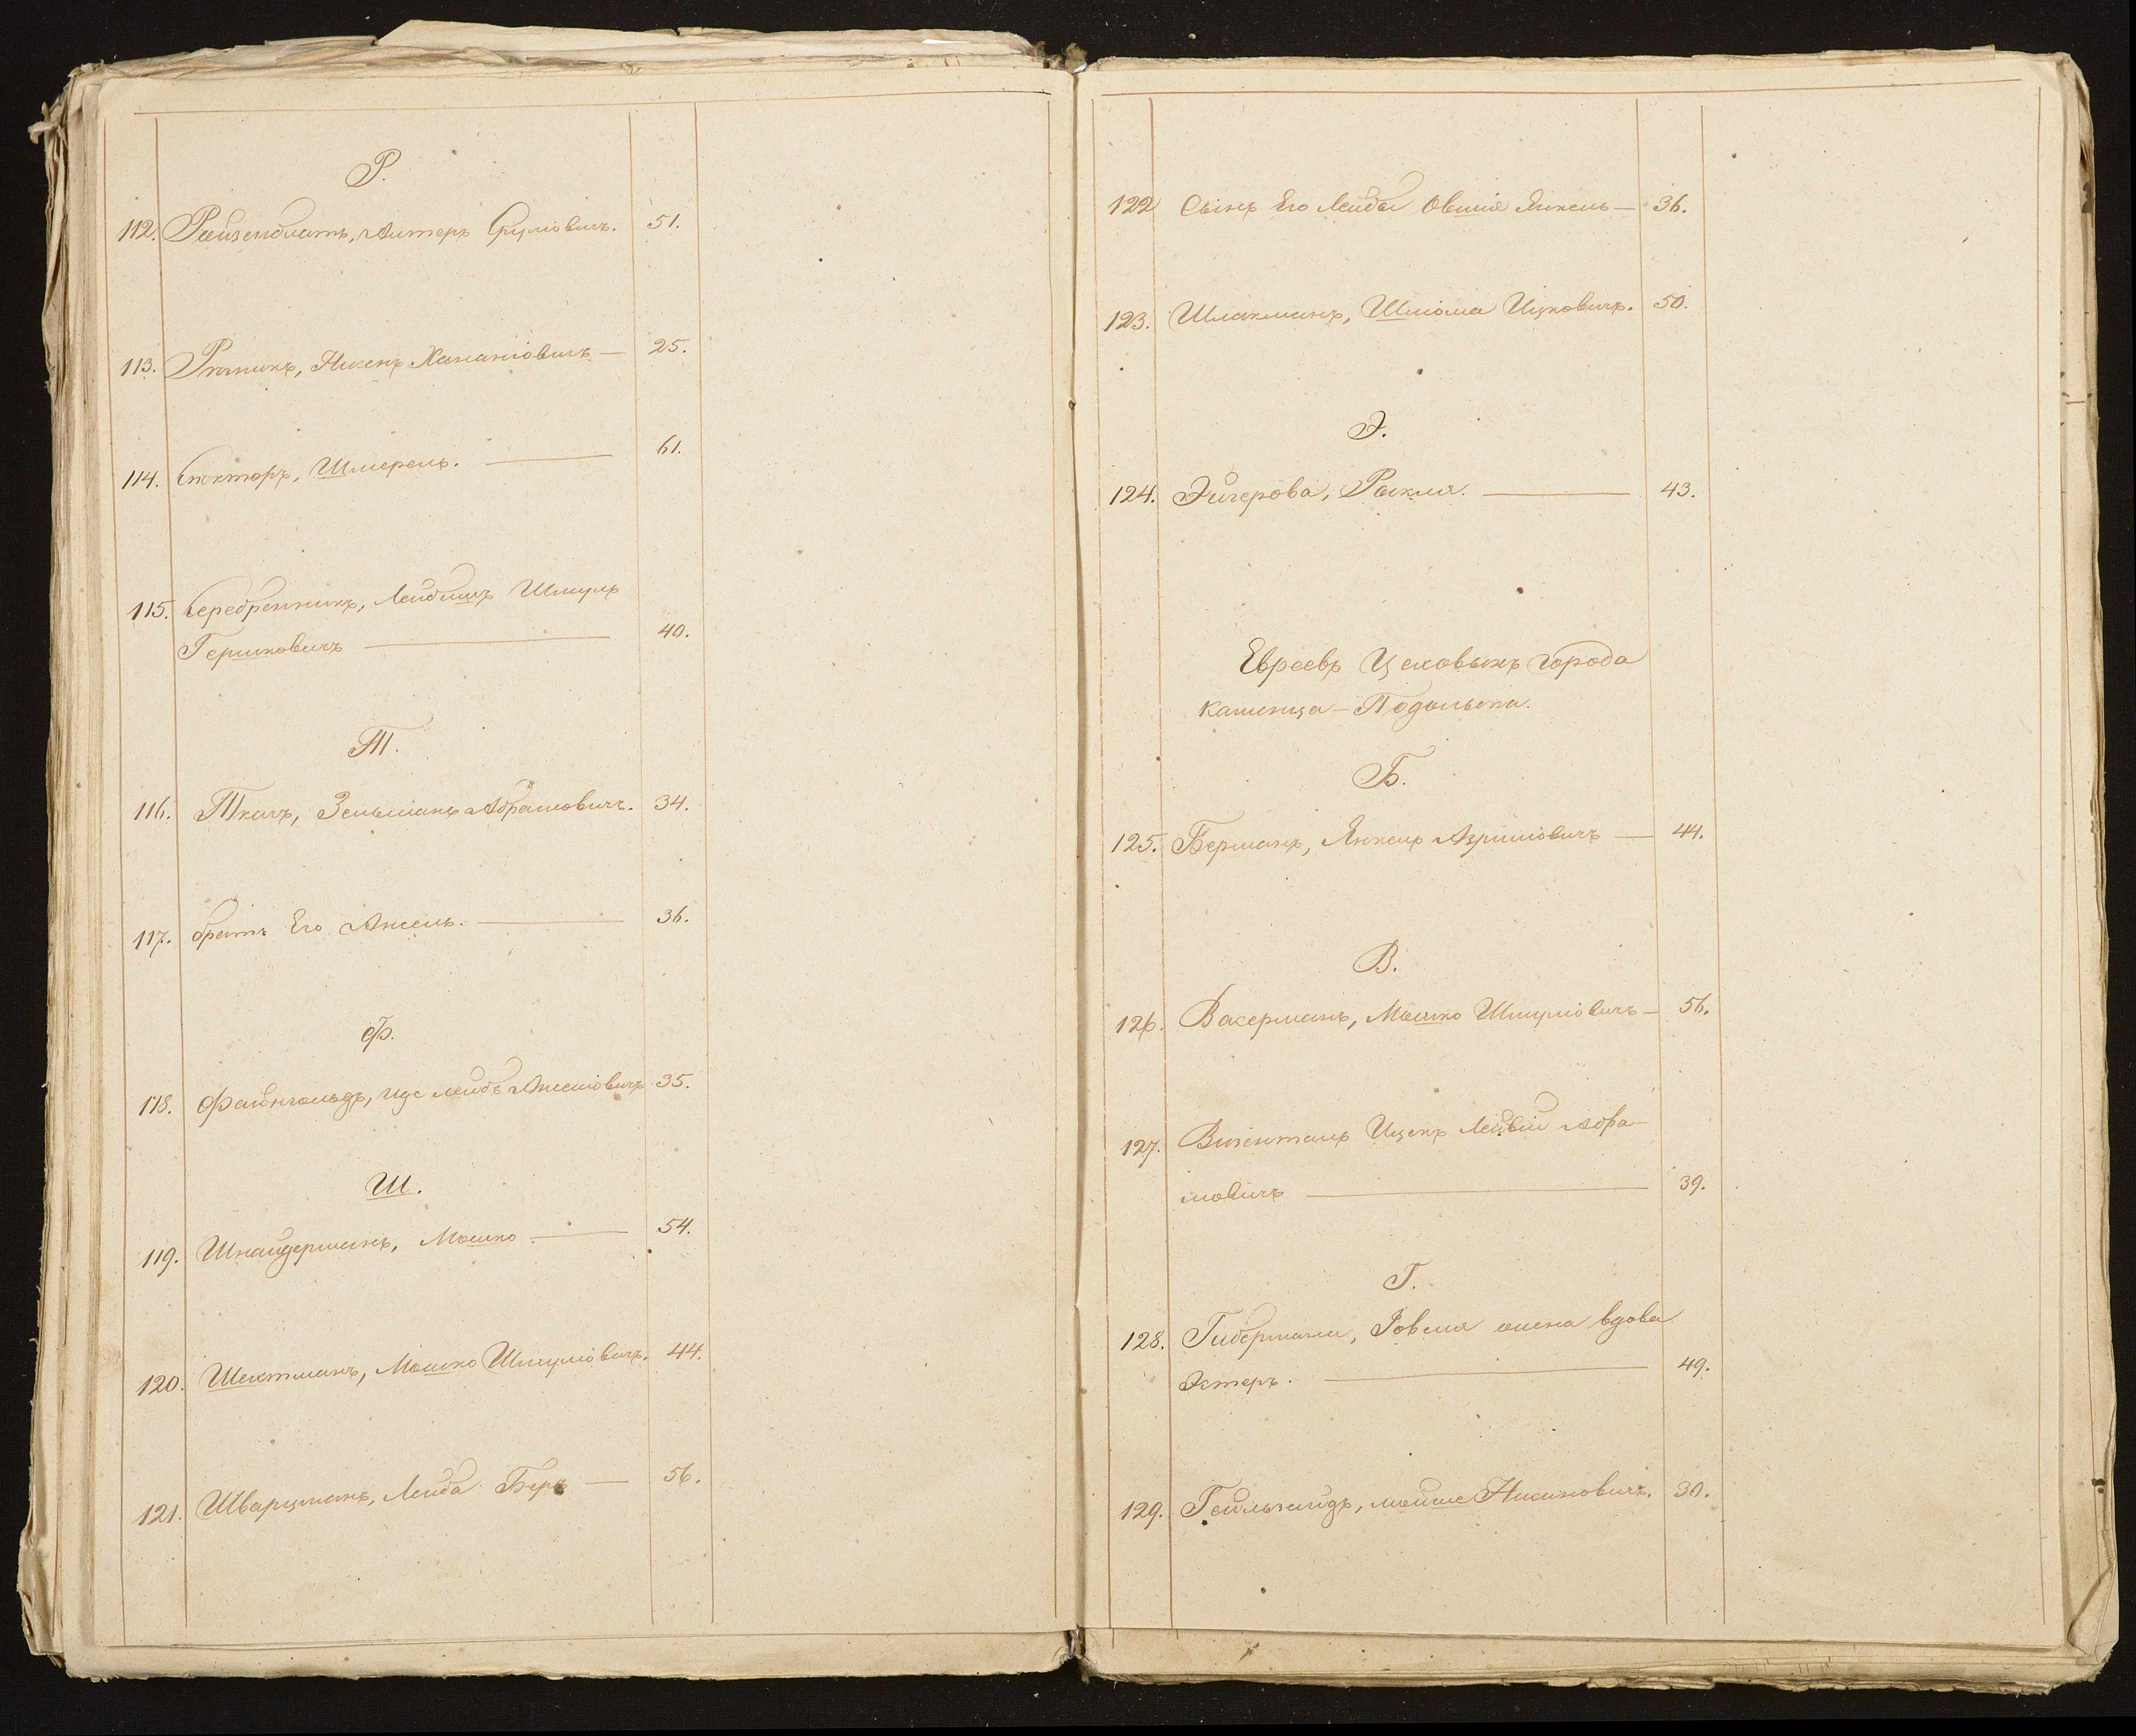 Р.
112. Райзенблатъ, Алтеръ Сруліовичъ. 51.
113. Рѣзникъ, Нисенъ Хананіовичъ — 25.
114. Спекторъ, Шмерель. — 61.
115. Серебренникъ, Лейбишъ Шмуль
Гершковичъ — 40.
Т.
116. Ткачъ, Зельманъ Абрамовичъ. 34.
117. братъ Его Анжель. — 36.
Ф.
118. Файнгольдъ, Иде Лейбъ Анжеліовичъ 35.
Ш.
119. Шнайдерманъ, Мошко — 54.
120. Шехтманъ, Мошко Шмуліовичъ. 44.
121. Шварцманъ, Лейба Беръ — 56.
122 Сынъ Его Лейбы Овшія Янкель — 36.
123. Шлакманъ, Шліома Ицковичъ. 50.
Э.
124. Эйгерова, Рыкля. — 43.
Евреевъ Цеховыхъ города
Каменца-Подольска.
Б.
125. Берманъ, Янкель Азриліовичъ — 44.
В.
126. Вакерманъ, Мошко Шмуліовичъ — 56.
127. Визенталь Ицекъ Лейвій Абра-
мовичъ — 39.
Г.
128. Гибермана, Іовеля жена вдова
Эстеръ. — 49.
129. Гейльзайдъ, Мойше Нисиновичъ. 30.